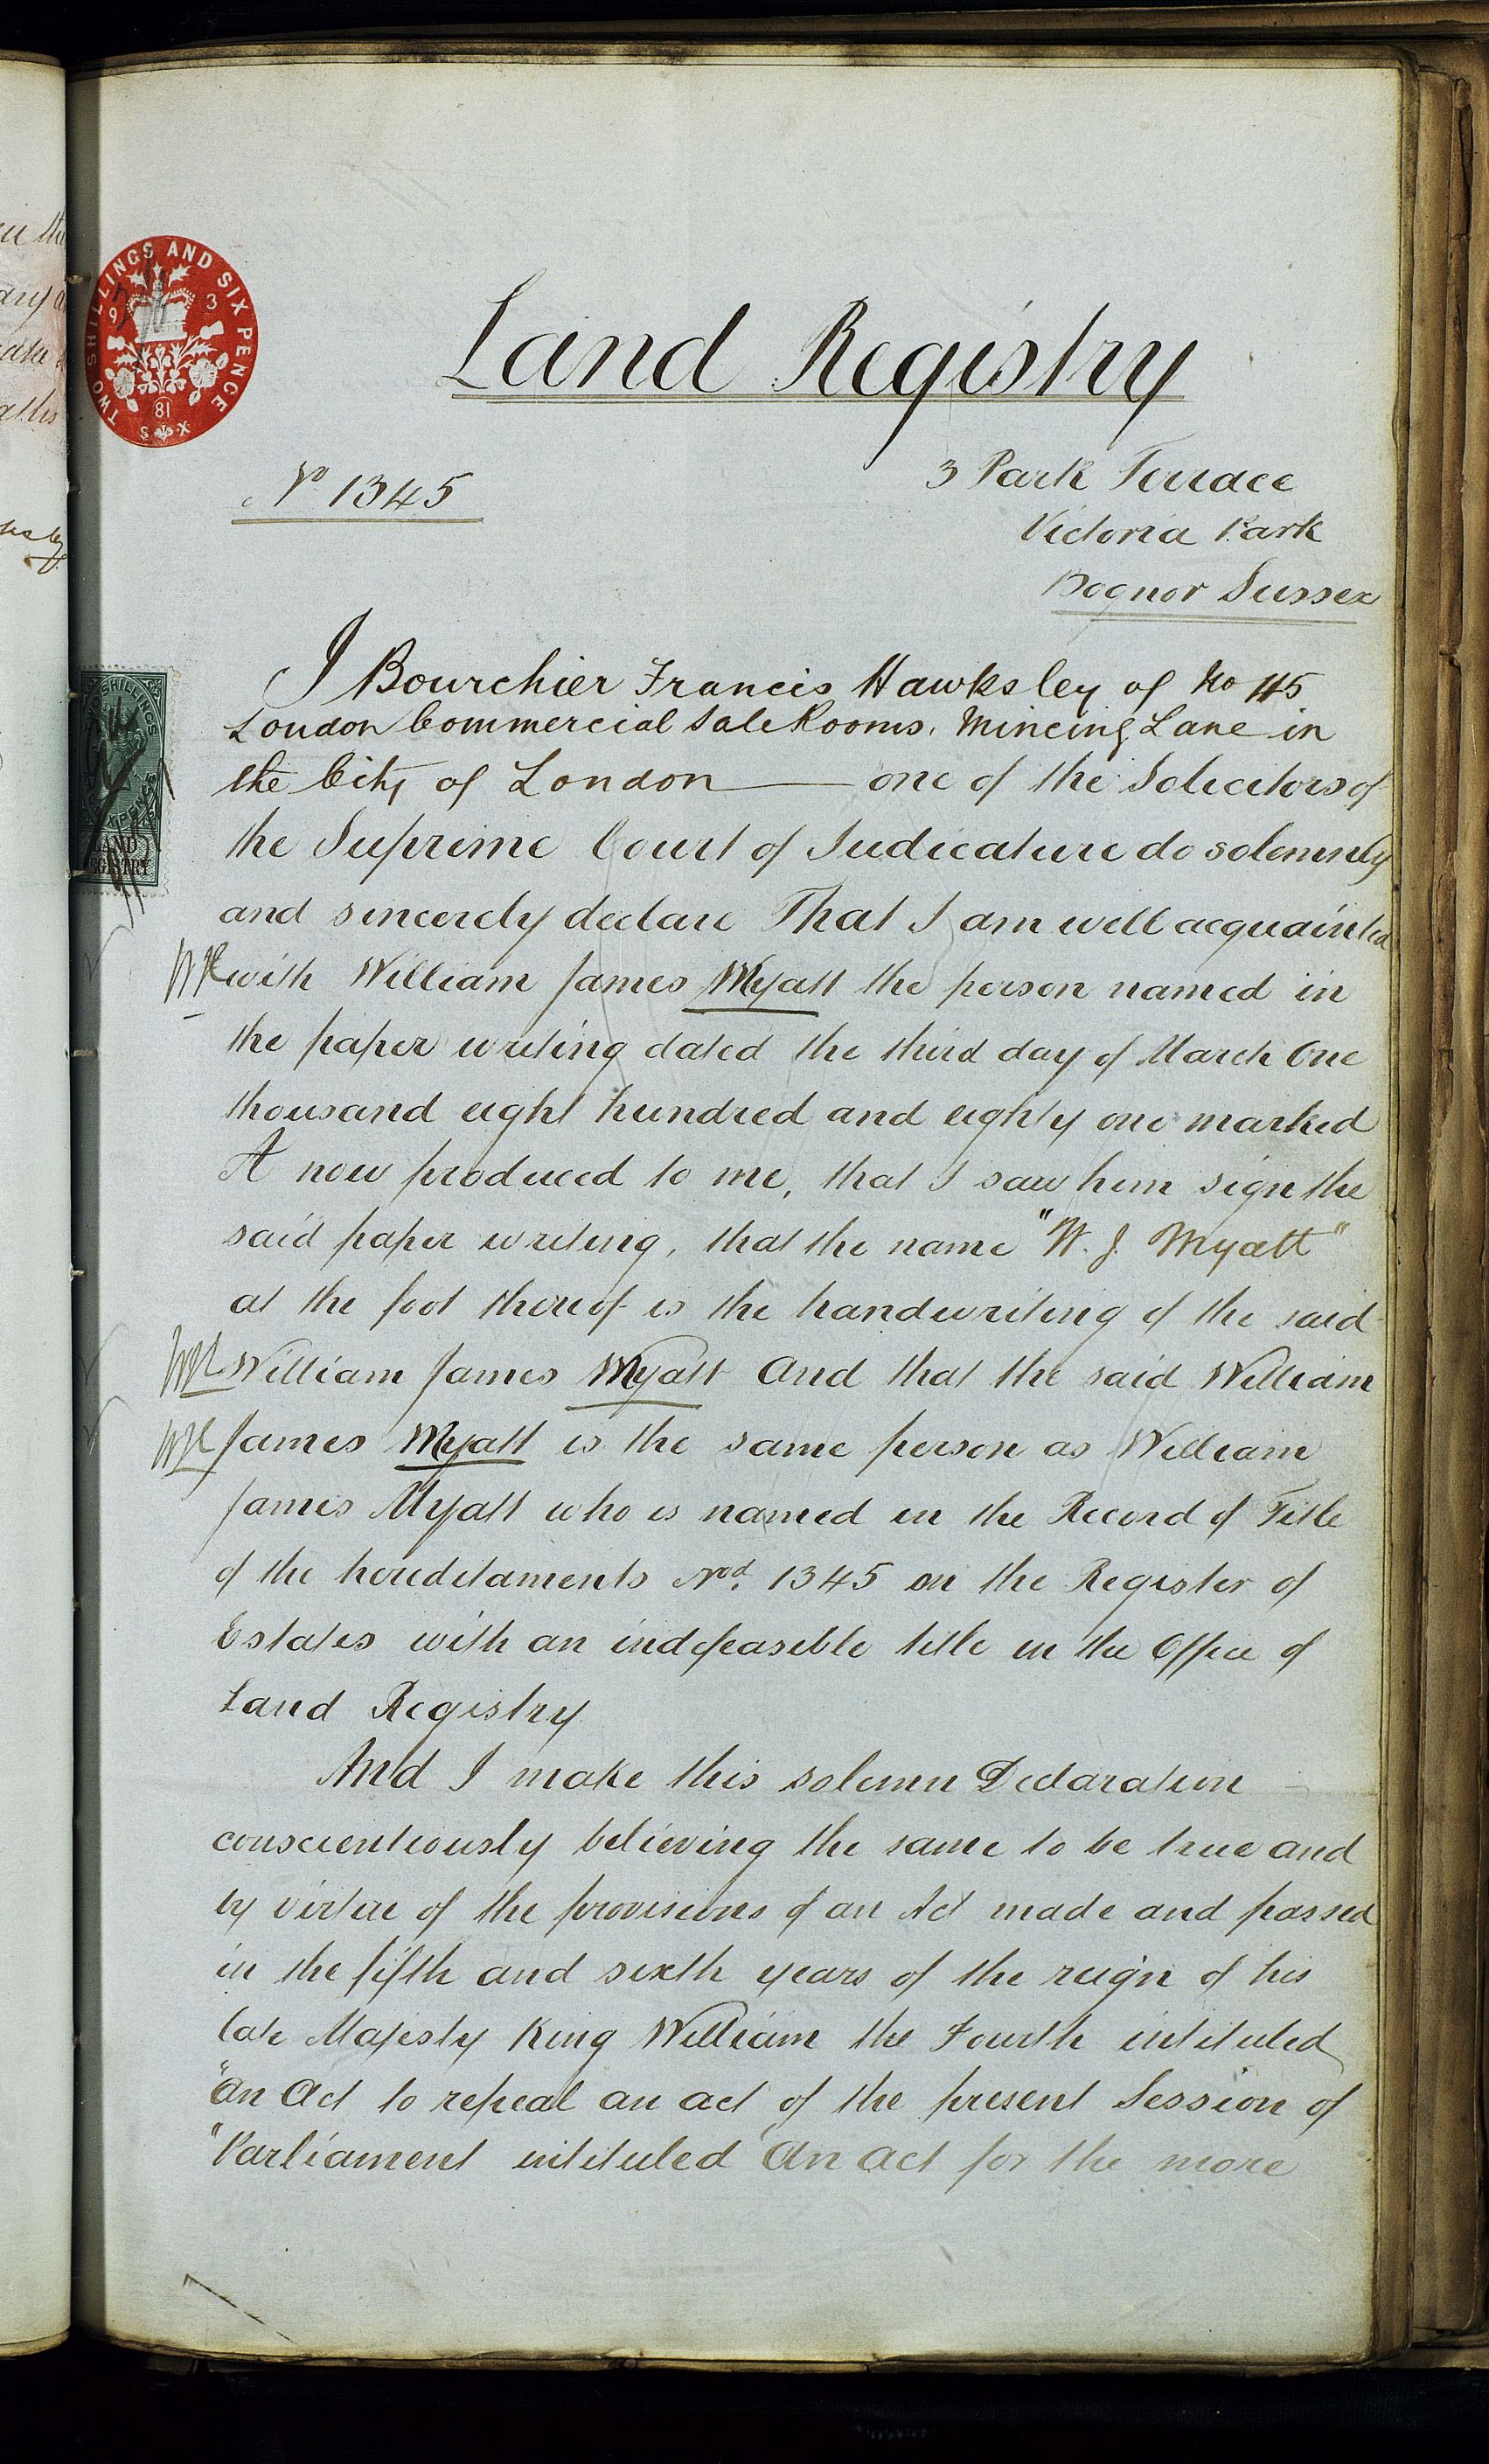 TWO SHILLINGS AND SIX PENCE
9 3
81
Land Registry
No 1345
3 Park Terrace
Victoria Park
Bognor Sussex
I Bourchier Francis Hawksley of No
London Commercial Sale Rooms. Mincing Lane in
the City of London — one of the Solicitors of
the Supreme Court of Judicature do solemnly
and sincerely declare That I am well acquainted
with William James Myatt the person named in
the paper writing dated the third day of March One
thousand eight hundred and eighty one marked
A now produced to me, that I saw him sign the
said paper writing, that the name "W. J. Myatt"
at the foot thereof is the handwriting of the said
William James Myatt And that the said William
James Myatt is the same person as William
James Myatt who is named in the Record of Title
of the hereditaments Nod. 1345 on the Register of
Estates with an indefeasible title in the Office of
Land Registry
And I make this solemn Declaration
conscientiously believing the same to be true and
by virtue of the provisions of an Act made and passed
in the fifth and sixth years of the reign of his
late Majesty King William the Fourth intituled
"An Act to repeal an act of the present Session of
"Parliament intituled An Act for the more
SHILLINGS
LAND
REGISTRY